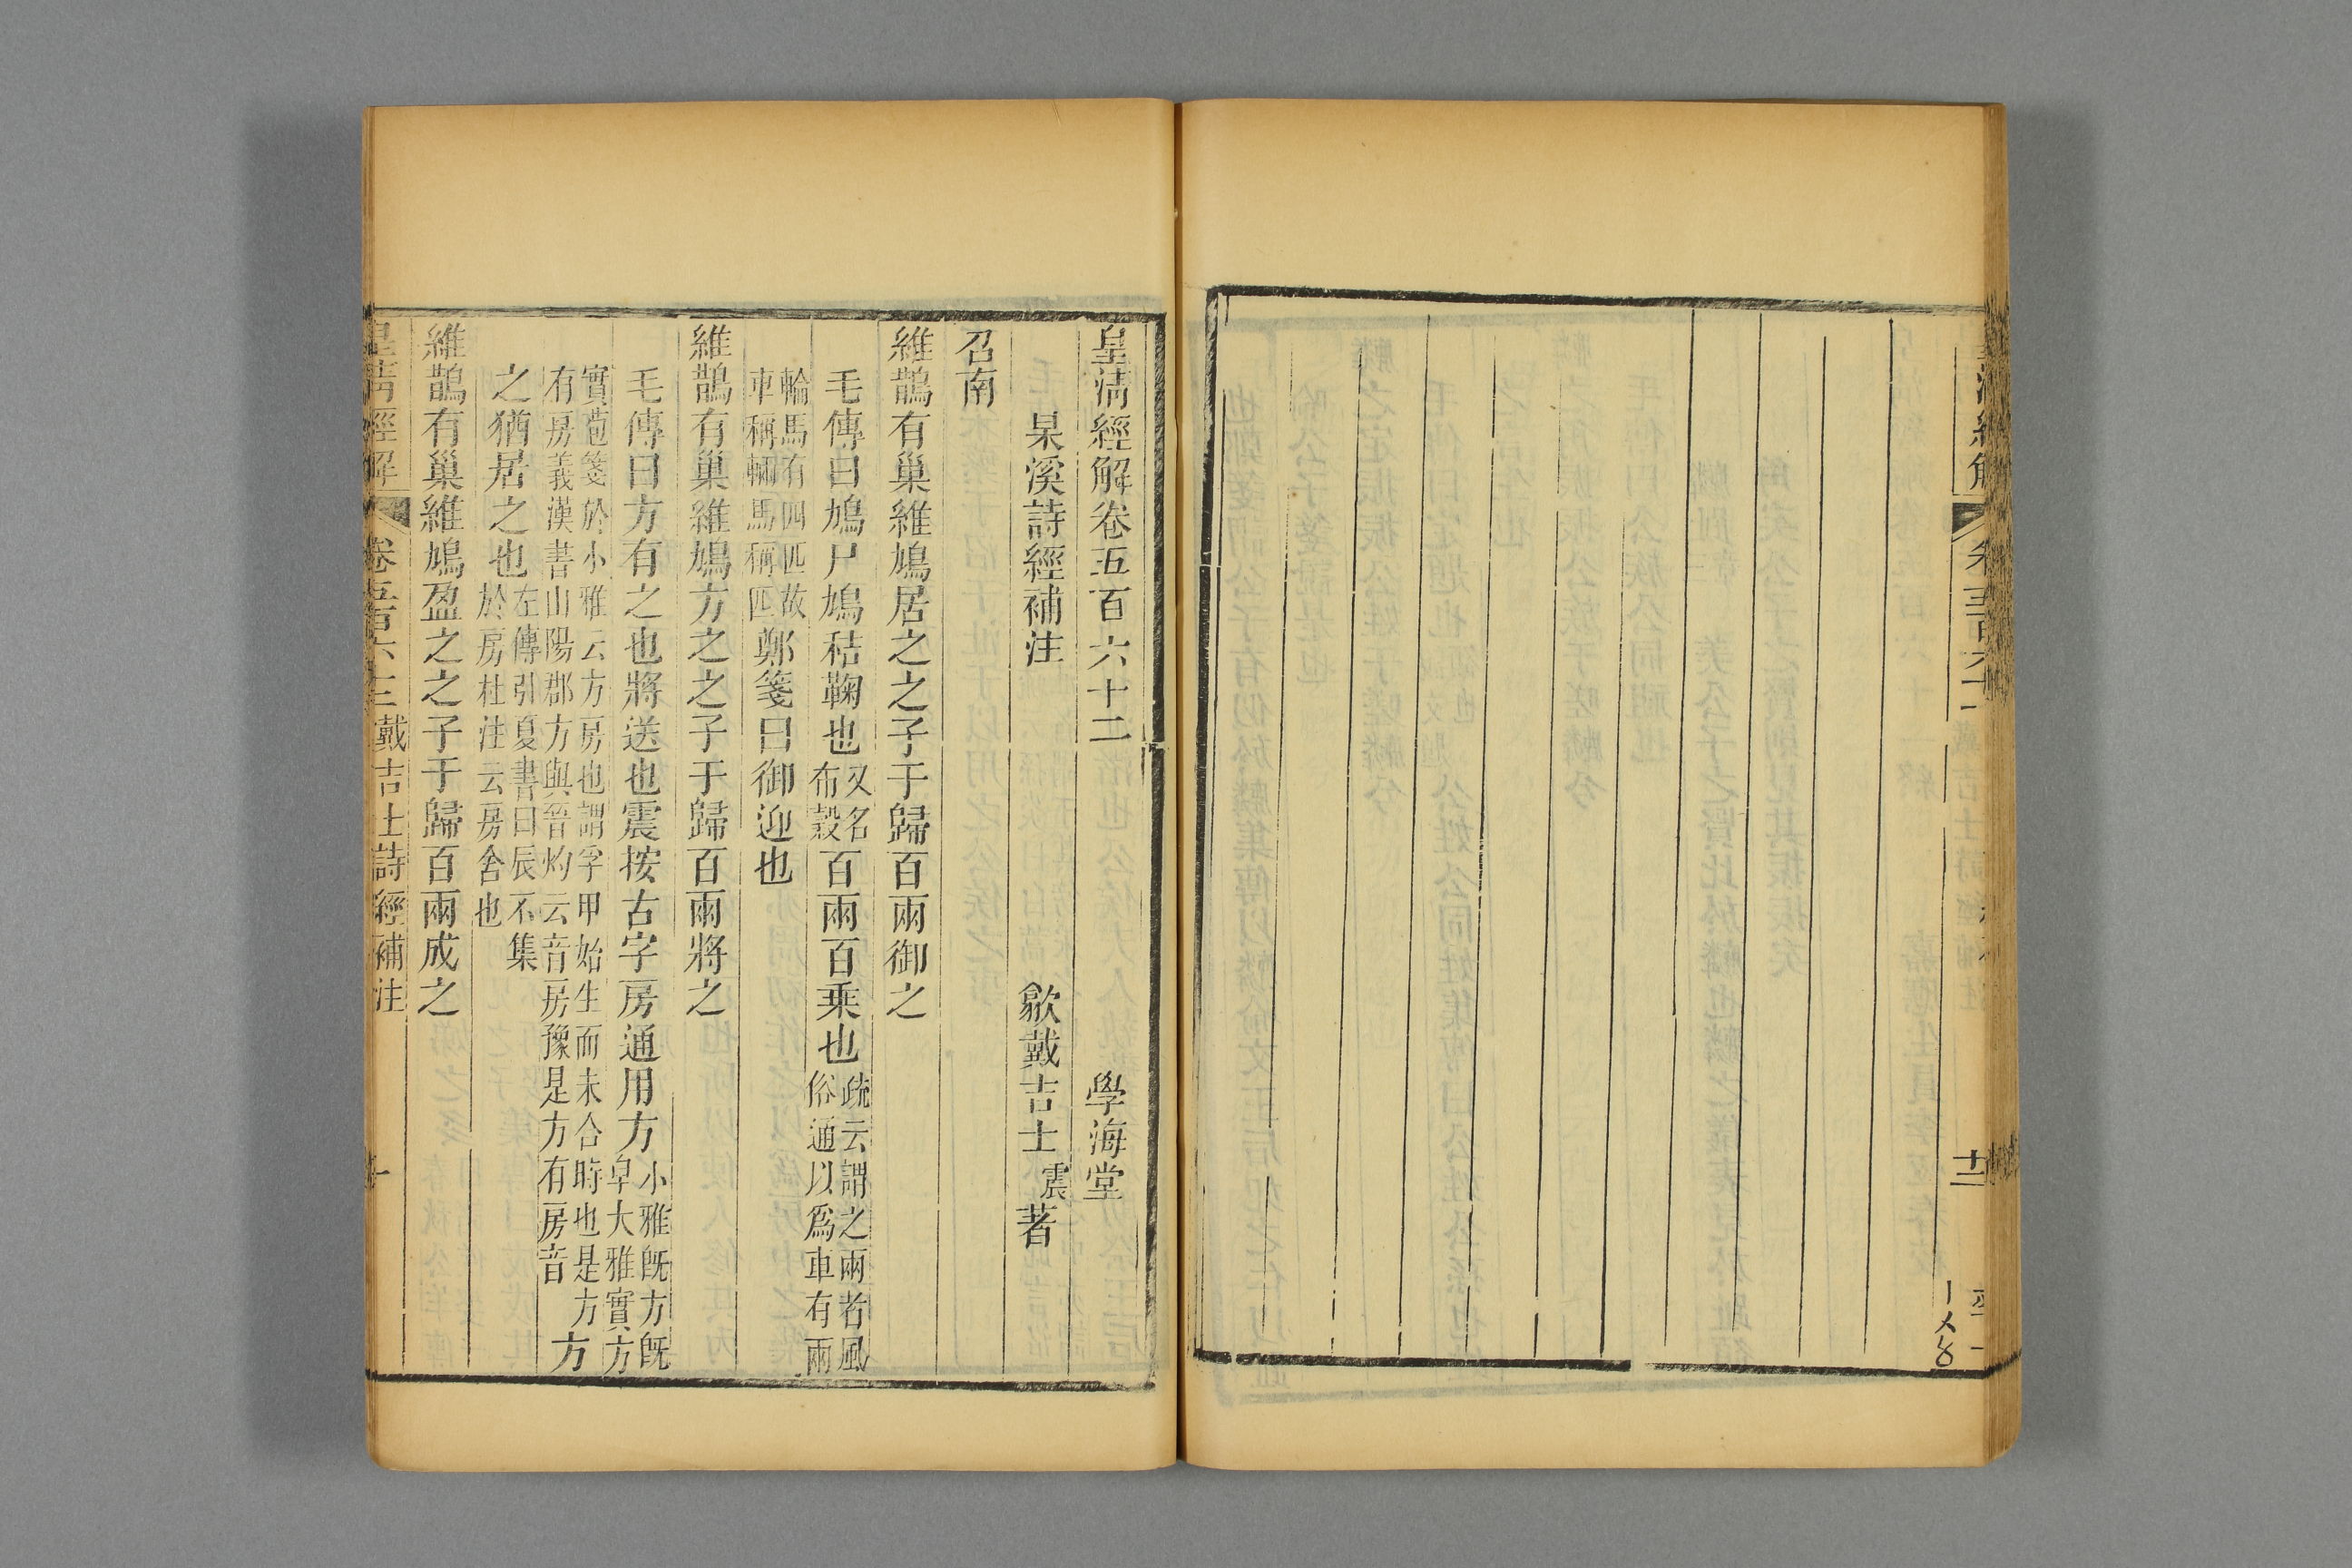 皇淸經解卷五百六十二　學海堂
杲溪詩經補注　歙戴吉士震著
召南
維鵲有巢維鳩居之之子于歸百兩御之
毛傳曰鳩尸鳩秸鞠也又名布穀百兩百乘也疏云謂之兩者風俗通以爲車有兩
輪馬有四匹故車稱輛馬稱匹鄭箋曰御迎也
維鵲有巢維鳩方之之子于歸百兩將之
毛傳曰方有之也將送也震按古字房通用方小雅旣方旣皁大雅實方
實苞箋於小雅云方房也謂孚甲始生而未合時也是方有房義漢書山陽郡方與晉灼云音房豫是方有房音方
之猶居之也左傳引夏書曰辰不集於房杜注云房舍也
維鵲有巢維鳩盈之之子于歸百兩成之
皇淸經解　卷五百六十二　戴吉士詩經補注　一